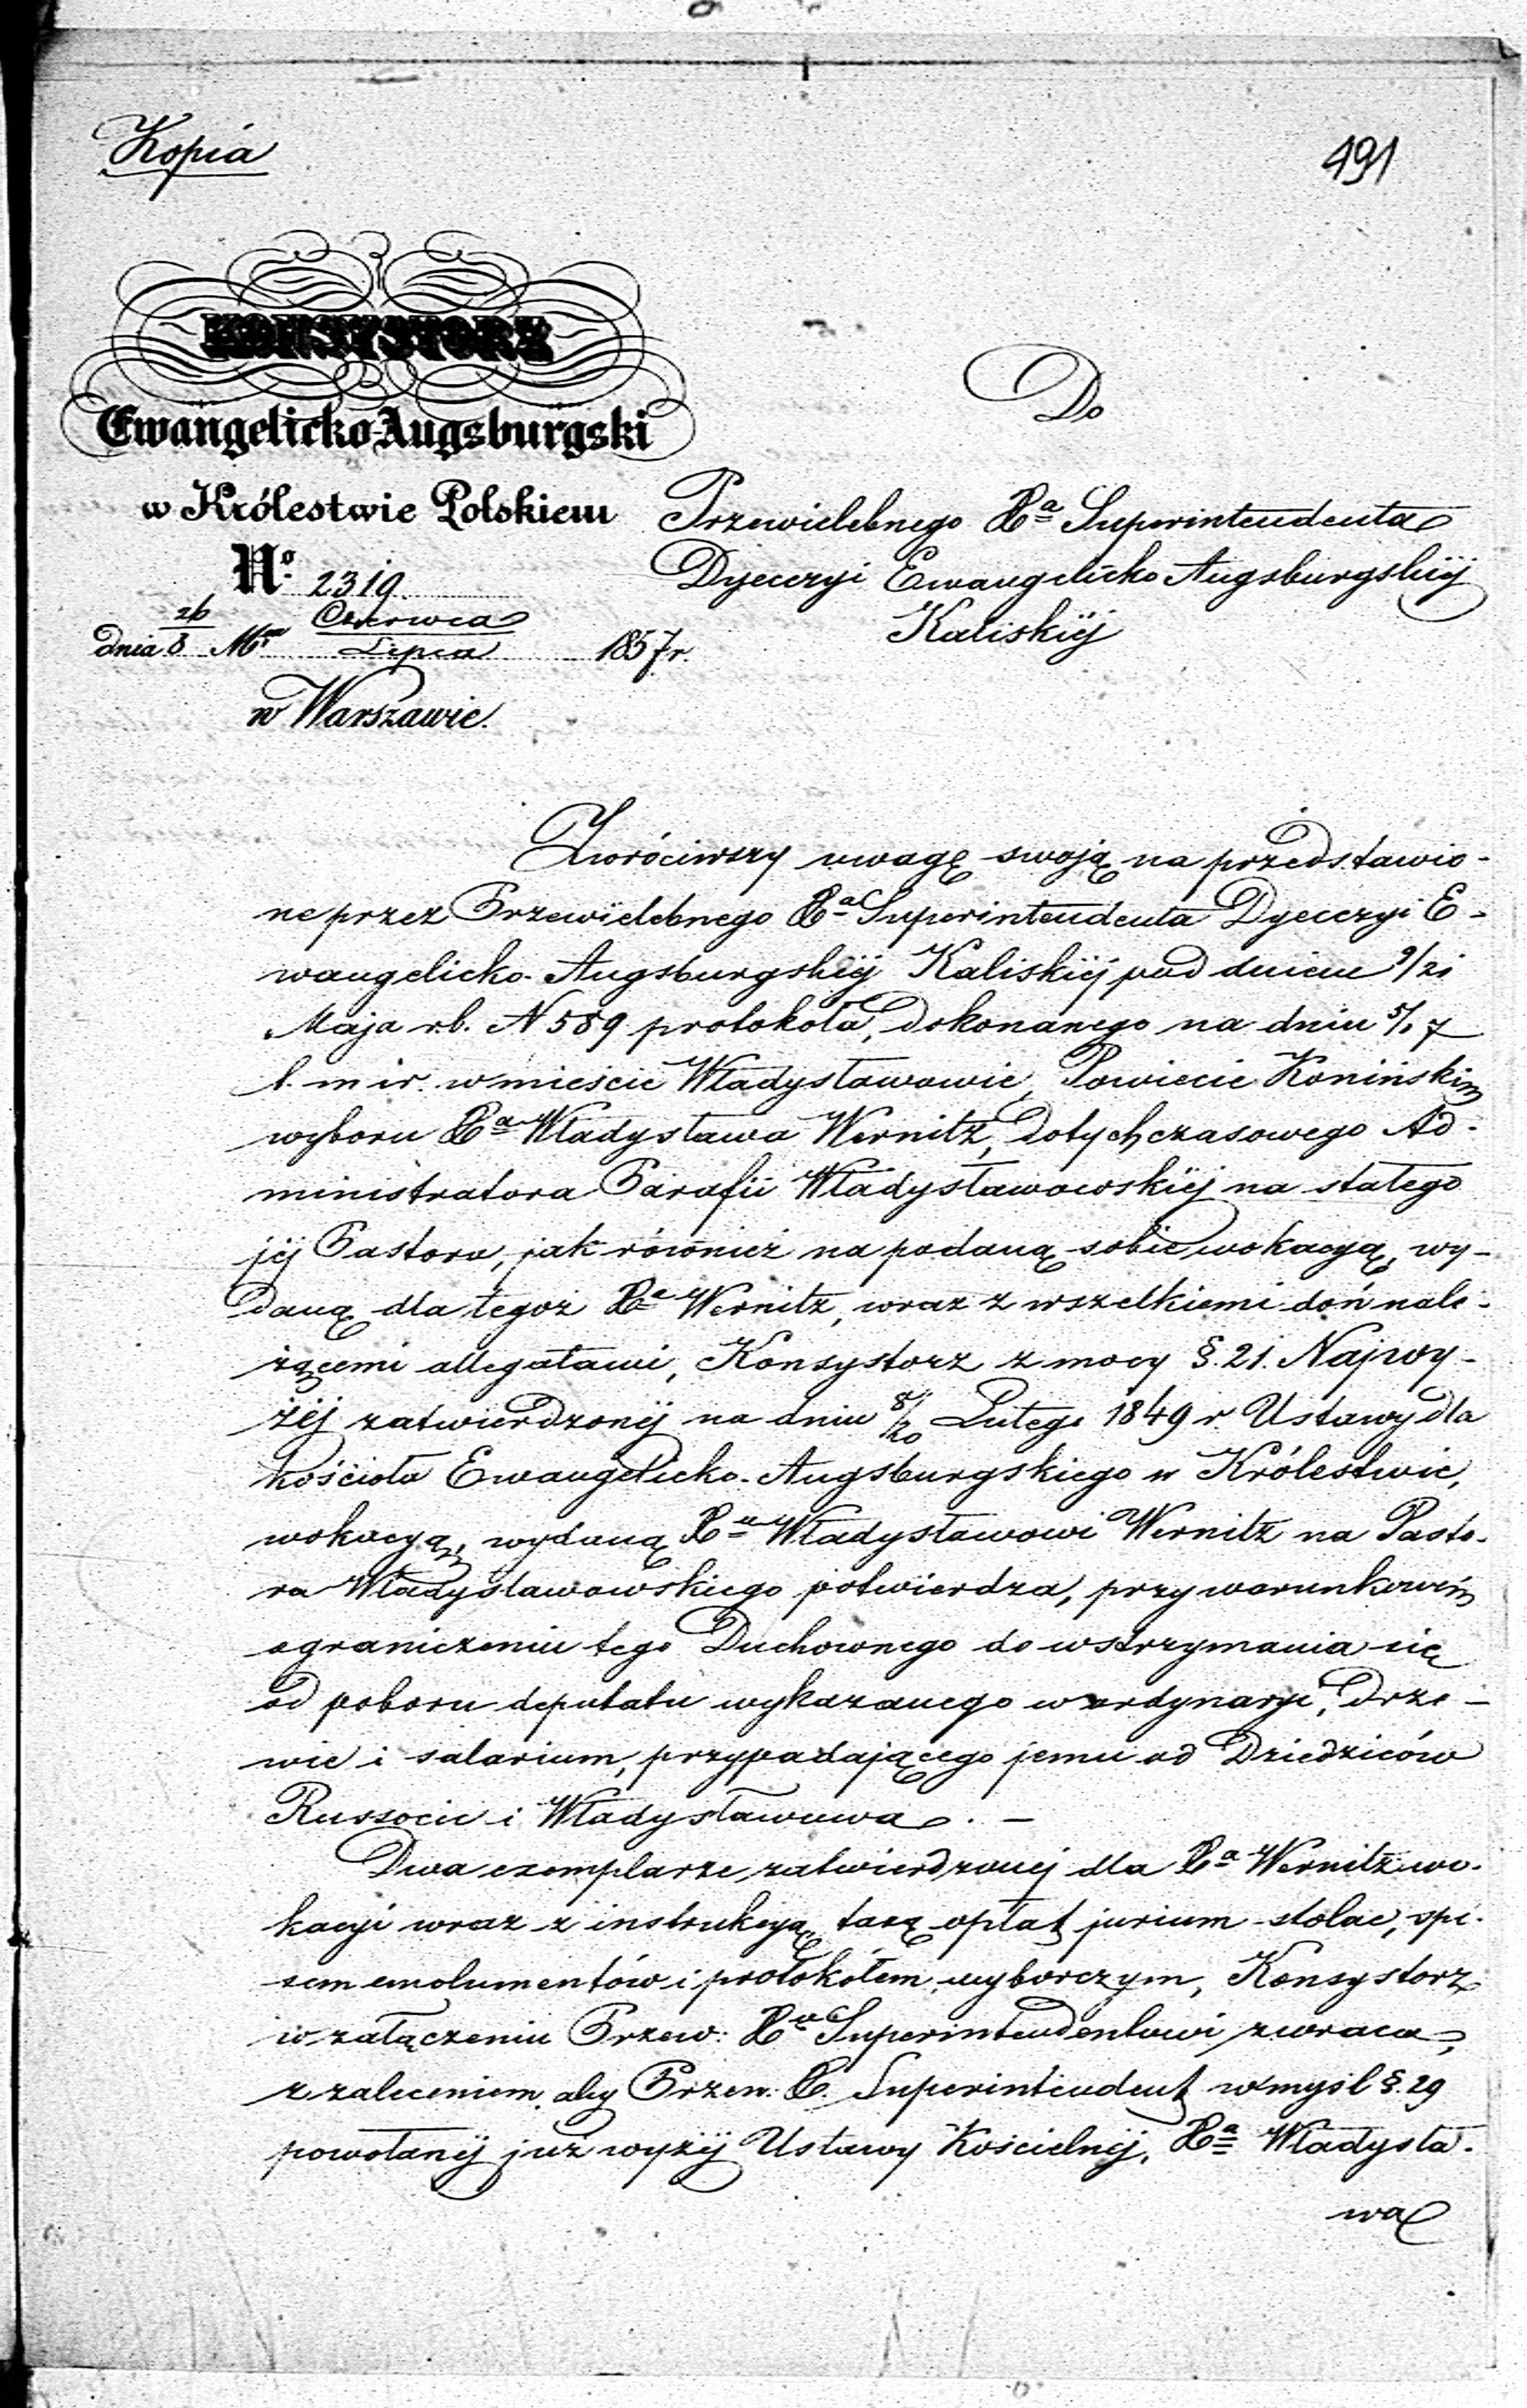 Kopia
491
KONSYSTORZ
Ewangelicko Augsburgski
w Królestwie Polskiem
Nº 2319
dnia 26/8 Mca Czerwca/Lipca 1857 r.
w Warszawie.
Do
Przewielebnego Xa Superintendenta
Dyecezyi Ewangelicko Augsburgskiéj
Kaliskiéj
Zwróciwszy uwagę swoją na przedstawio-
ne przez Przewielebnego Xa Superintendenta Dyecezyi E-
wangelicko-Augsburgskiéj Kaliskiéj pod dniem 9/21
Maja r.b. N 589 protokóła, dokonanego na dniu 5/17
t. m i r. w mieście Władysławowie, Powiecie Konińskim
wyboru Xa Władysława Wernitz, dotychczasowego Ad-
ministratora Parafii Władysławowskiéj na stałego
jéj Pastora, jak również na podaną sobie wokacyą, wy-
daną dla tegoż Xa Wernitz, wraz z wszelkiemi doń nale-
żącemi allegatami, Konsystorz z mocy §. 21. Najwy-
żéj zatwierdzonéj na dniu 8/20 Lutego 1849 r Ustawy dla
kościoła Ewangelicko-Augsburgskiego w Królestwie,
wokacyą, wydaną Xu Władysławowi Wernitz na Pasto-
ra Władysławowskiego potwierdza, przy warunkowém
ograniczeniu tego Duchownego do wstrzymania się
od poboru deputatu wykazanego w ordynaryi, drze-
wie i salarium, przypadającego jemu od Dziedziców
Russocic i Władysławowa. -
Dwa exemplarze zatwierdzonéj dla Xa Wernitz wo-
kacyi wraz z instrukcyą, taxą opłat jurium stolae, spi-
sem emolumentów i protokółem wyborczym, Konsystorz
w załączeniu Przew: Xu Superintendentowi zwraca,
z zaleceniem, aby Przew. X. Superintendent w myśl §. 29
powołanéj już wyżéj Ustawy Kościelnéj, Xa Władysła-
wa